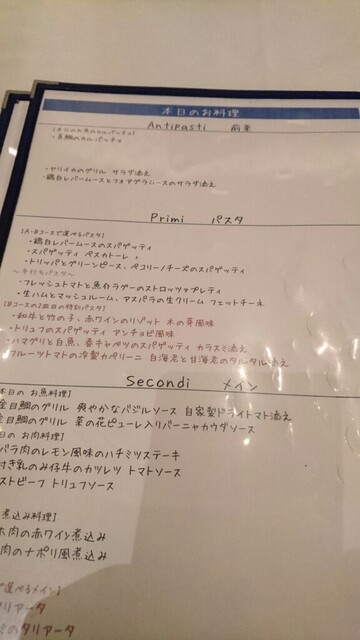 本日のお料理
Antipasti 前菜
[本日のお魚のカルパッチョ]
・真鯛のカルパッチョ
・ヤリイカのグリル サラダ添え
・鶏白レバームースとフォアグラニースのサラダ添え
Primi パスタ
[A・Bコースで選べるパスタ]
・鶏白レバームースのスパゲッティ
・スパゲッティ ペスカトーレ
・トリッパとグリーンピース、ペコリーノチーズのスパゲッティ
～手打ちパスタ～
・フレッシュトマトと魚介ラグーのストロッツァプレティ
・生ハムとマッシュルーム、アスパラの生クリーム フェットチーネ
[Bコースの2皿目の特別パスタ]
・和牛と竹の子、赤ワインのリゾット 木の芽風味
・トリュフのスパゲッティ アンチョビ風味
・ハマグリと白魚、春キャベツのスパゲッティ カラスミ添え
フルーツトマトの冷製カペリーニ 白海老と甘海老のタルタル添え
Secondi メイン
本日の お魚料理]
金目鯛のグリル 爽やかなバジルソース 自家製ドライトマト添え
金目鯛のグリル 菜の花ピューレ入りバーニャカウダソース
日の お肉料理]
バラ肉のレモン風味のハチミツステーキ
付き乳のみ仔牛のカツレツ トマトソース
ストビーフ トリュフソース
煮込み料理]
ホ肉の赤ワイン煮込み
肉のナポリ風煮込み
で選べるメイン]
タリアータ
のタリアータ